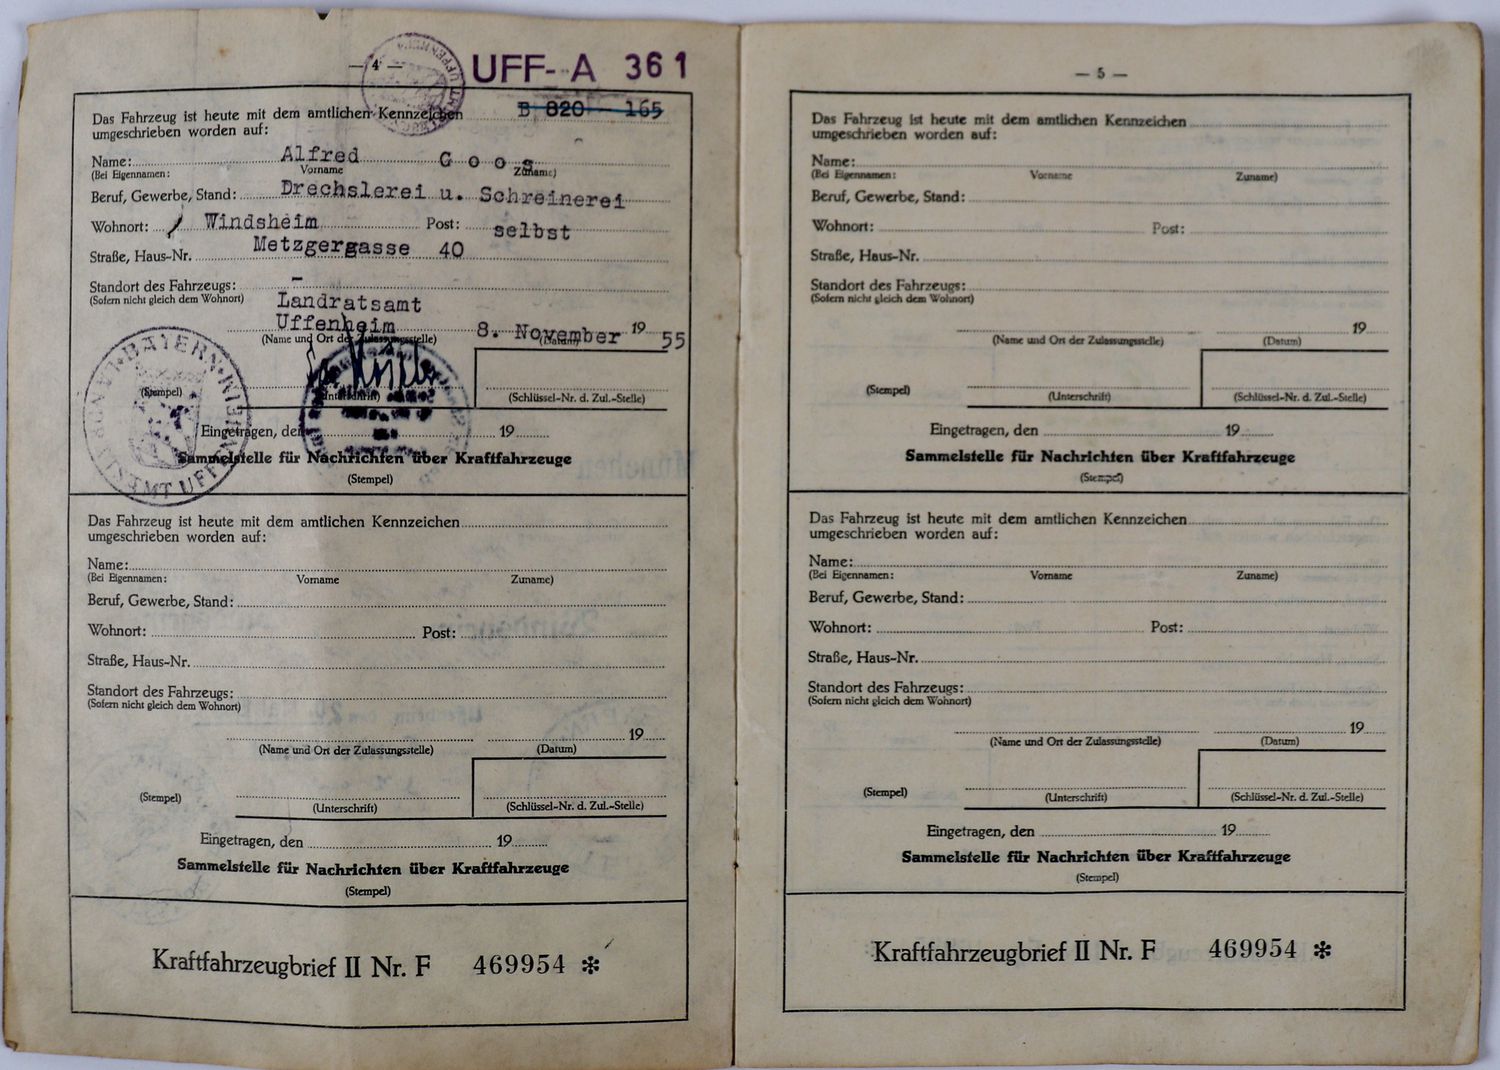 — 4 —
UFF-A 361
Das Fahrzeug ist heute mit dem amtlichen Kennzeichen B 820 - 165
umgeschrieben worden auf:
Name: Alfred Goos
(Bei Eigennamen: Vorname Zuname)
Beruf, Gewerbe, Stand: Drechslerei u. Schreinerei
Wohnort: Windsheim Post: selbst
Straße, Haus-Nr. Metzgergasse 40
Standort des Fahrzeugs: -
(Sofern nicht gleich dem Wohnort)
Landratsamt
Uffenheim 8. November 1955
(Name und Ort der Zulassungsstelle) (Datum)
(Stempel) (Unterschrift) (Schlüssel-Nr. d. Zul.-Stelle)
Eingetragen, den 19
Sammelstelle für Nachrichten über Kraftfahrzeuge
(Stempel)
Das Fahrzeug ist heute mit dem amtlichen Kennzeichen
umgeschrieben worden auf:
Name:
(Bei Eigennamen: Vorname Zuname)
Beruf, Gewerbe, Stand:
Wohnort: Post:
Straße, Haus-Nr.
Standort des Fahrzeugs:
(Sofern nicht gleich dem Wohnort)
19
(Name und Ort der Zulassungsstelle) (Datum)
(Stempel) (Unterschrift) (Schlüssel-Nr. d. Zul.-Stelle)
Eingetragen, den 19
Sammelstelle für Nachrichten über Kraftfahrzeuge
(Stempel)
Kraftfahrzeugbrief II Nr. F 469954 *
— 5 —
Das Fahrzeug ist heute mit dem amtlichen Kennzeichen
umgeschrieben worden auf:
Name:
(Bei Eigennamen: Vorname Zuname)
Beruf, Gewerbe, Stand:
Wohnort: Post:
Straße, Haus-Nr.
Standort des Fahrzeugs:
(Sofern nicht gleich dem Wohnort)
19
(Name und Ort der Zulassungsstelle) (Datum)
(Stempel) (Unterschrift) (Schlüssel-Nr. d. Zul.-Stelle)
Eingetragen, den 19
Sammelstelle für Nachrichten über Kraftfahrzeuge
(Stempel)
Das Fahrzeug ist heute mit dem amtlichen Kennzeichen
umgeschrieben worden auf:
Name:
(Bei Eigennamen: Vorname Zuname)
Beruf, Gewerbe, Stand:
Wohnort: Post:
Straße, Haus-Nr.
Standort des Fahrzeugs:
(Sofern nicht gleich dem Wohnort)
19
(Name und Ort der Zulassungsstelle) (Datum)
(Stempel) (Unterschrift) (Schlüssel-Nr. d. Zul.-Stelle)
Eingetragen, den 19
Sammelstelle für Nachrichten über Kraftfahrzeuge
(Stempel)
Kraftfahrzeugbrief II Nr. F 469954 *